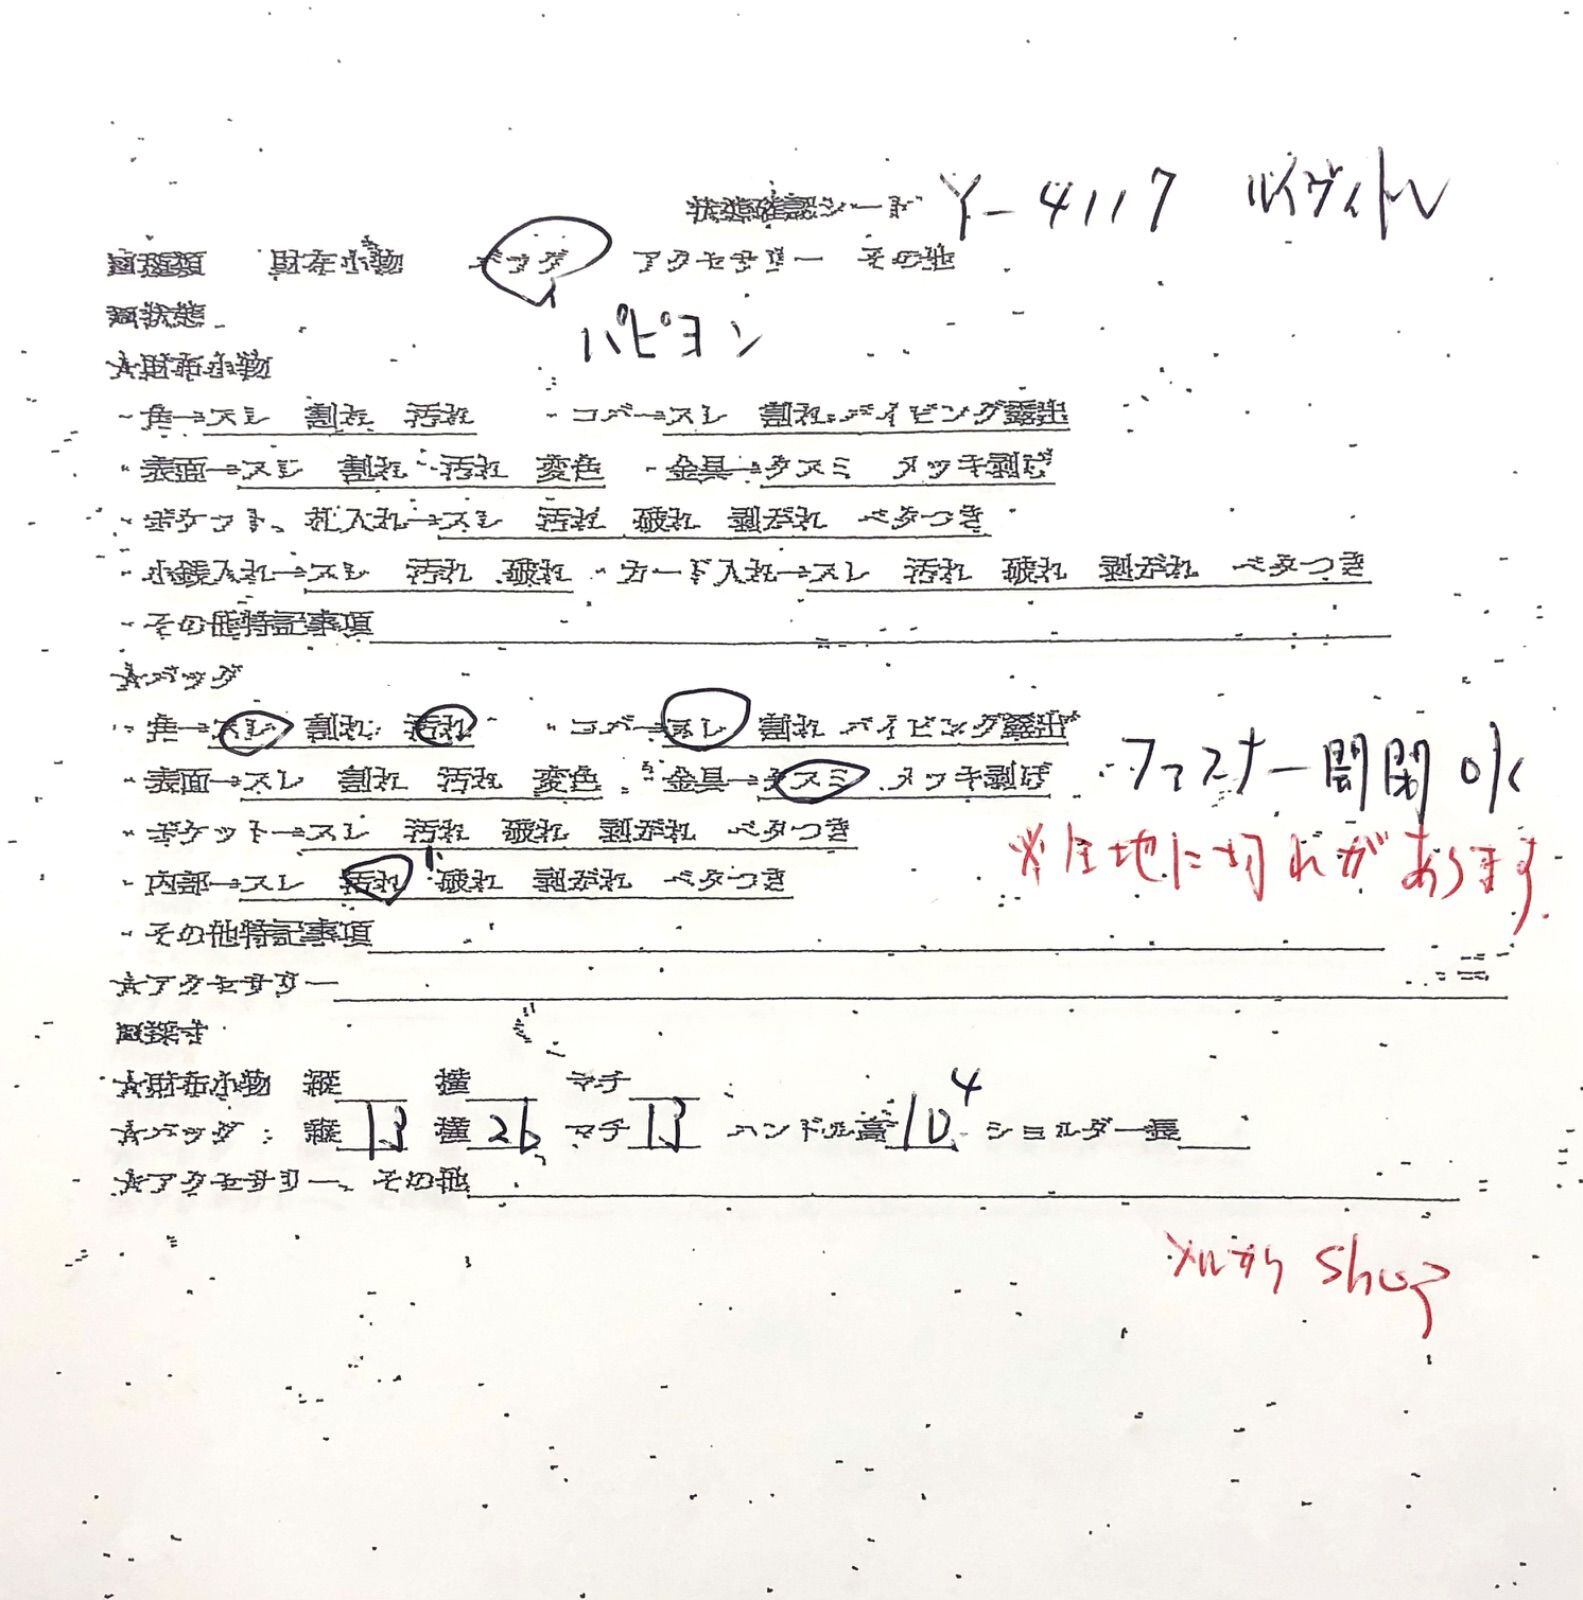 状態確認シート Y-4117 ルイヴィトン
■種類 財布小物 バッグ アクセサリー その他
■状態
パピヨン
★財布小物
・角→スレ 割れ 汚れ ・コバ→スレ 割れ パイピング露出
・表面→スレ 割れ 汚れ 変色 ・金具→クスミ メッキ剥げ
・ポケット、札入れ→スレ 汚れ 破れ 剥がれ ベタつき
・小銭入れ→スレ 汚れ 破れ ・カード入れ→スレ 汚れ 破れ 剥がれ ベタつき
・その他特記事項
★バッグ
・角→スレ 割れ 汚れ ・コバ→スレ 割れ パイピング露出
・表面→スレ 割れ 汚れ 変色 ・金具→クスミ メッキ剥げ ファスナー開閉OK
・ポケット→スレ 汚れ 破れ 剥がれ ベタつき
※生地に切れがあります
・内部→スレ 汚れ 破れ 剥がれ ベタつき
・その他特記事項
★アクセサリー
■採寸
★財布小物 縦 横 マチ
★バッグ 縦 13 横 26 マチ 13 ハンドル高 10 4 ショルダー長
★アクセサリー、その他
メルカリ Shop